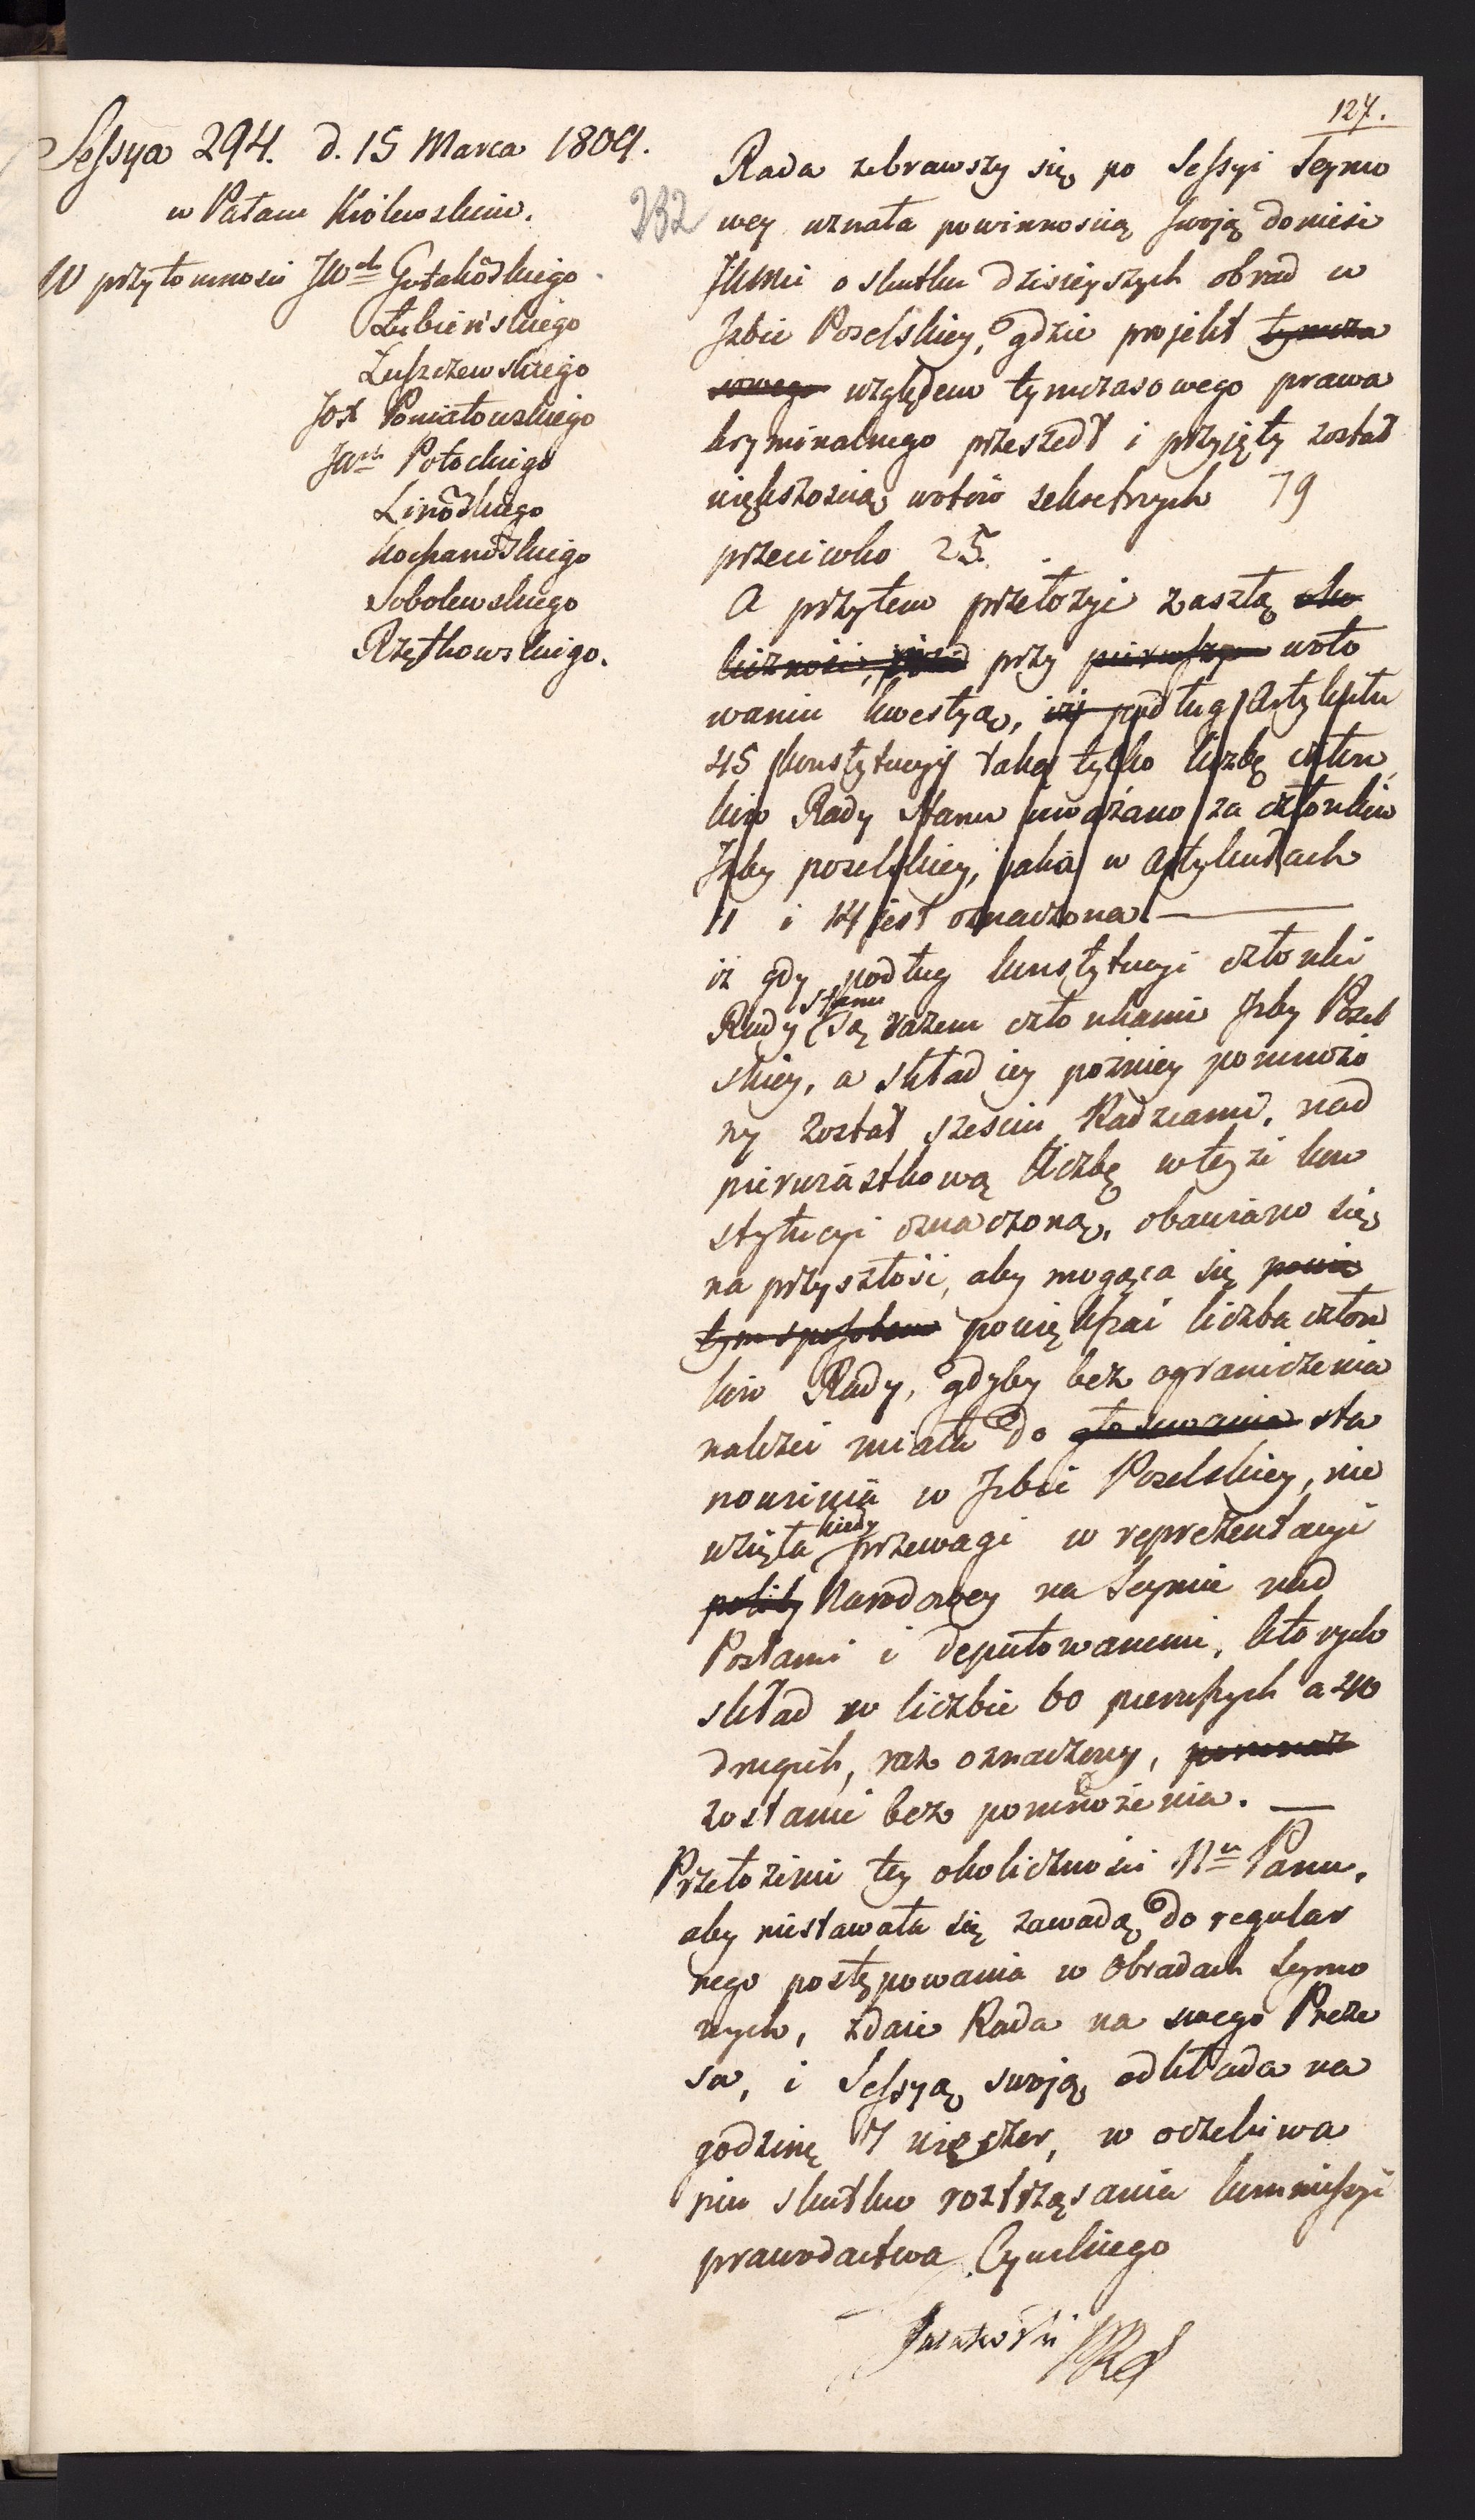 127.
Sessya 294. d. 15 Marca 1809.
w Pałacu Królewskim.
W przytomności JWch Gutakowskiego
Łubieńskiego
Łuszczewskiego
JOX Poniatowskiego
JWch Potockiego
Linowskiego
Kochanowskiego
Sobolewskiego
Rzętkowskiego.
232
Rada zebrawszy się po Sessyi Seymo
wey uznała powinnością swoją donieść
JKMci o skutku dzisieyszych obrad w
Jzbie Poselskiey, gdzie projekt tymcza
sowego względem tymczasowego prawa
kryminalnego przeszedł i przyięty został
większością wotów sekretnych 79
przeciwko 25.
A przytem przełożyć zaszłą oko
liczność, przed przy pierwszym woto
waniu kwestyą, iż podług Artykułu
45 konstytucyi taką tylko liczbę człon
ków Rady Stanu uważano za członków
Jzby poselskiey, jaka w Artykułach
11 i 14 jest oznaczona. —
iż gdy podług konstytucyi członki
Rady Stanu są razem członkami Jzby Posel
skiey, a skład iey poźniey pomnożo
ny został sześciu Radzcami, nad
pierwiastkową liczbę w teyże kon
stytucyi oznaczoną, obawiano się
na przyszłość, aby mogąca się powię
tym sposobem powiększać liczba człon
ków Rady, gdyby bez ograniczenia
należeć miała do głosowania sta
nowienia w Jzbie Poselskiey, nie
wzięła kiedy przewagi w reprezentacyi
polity Narodowey na Seymie nad
Posłami i deputowanemi, których
skład w liczbie 60 pierwszych a 40
drugich, raz oznaczony, ponieważ
zostanie bez pomnożenia. —
Przełożenie tey okoliczności Nu Panu,
aby niestawała się zawadą do regular
nego postępowania w Obradach Seymo
wych, zdaie Rada na swego Preze
sa, i Sessyą swoją odkłada na
godzinę 7 więczor, w oczekiwa
niu skutku roztrząsania kommissyi
prawodactwa Cywilnego
Gutakowski PRS